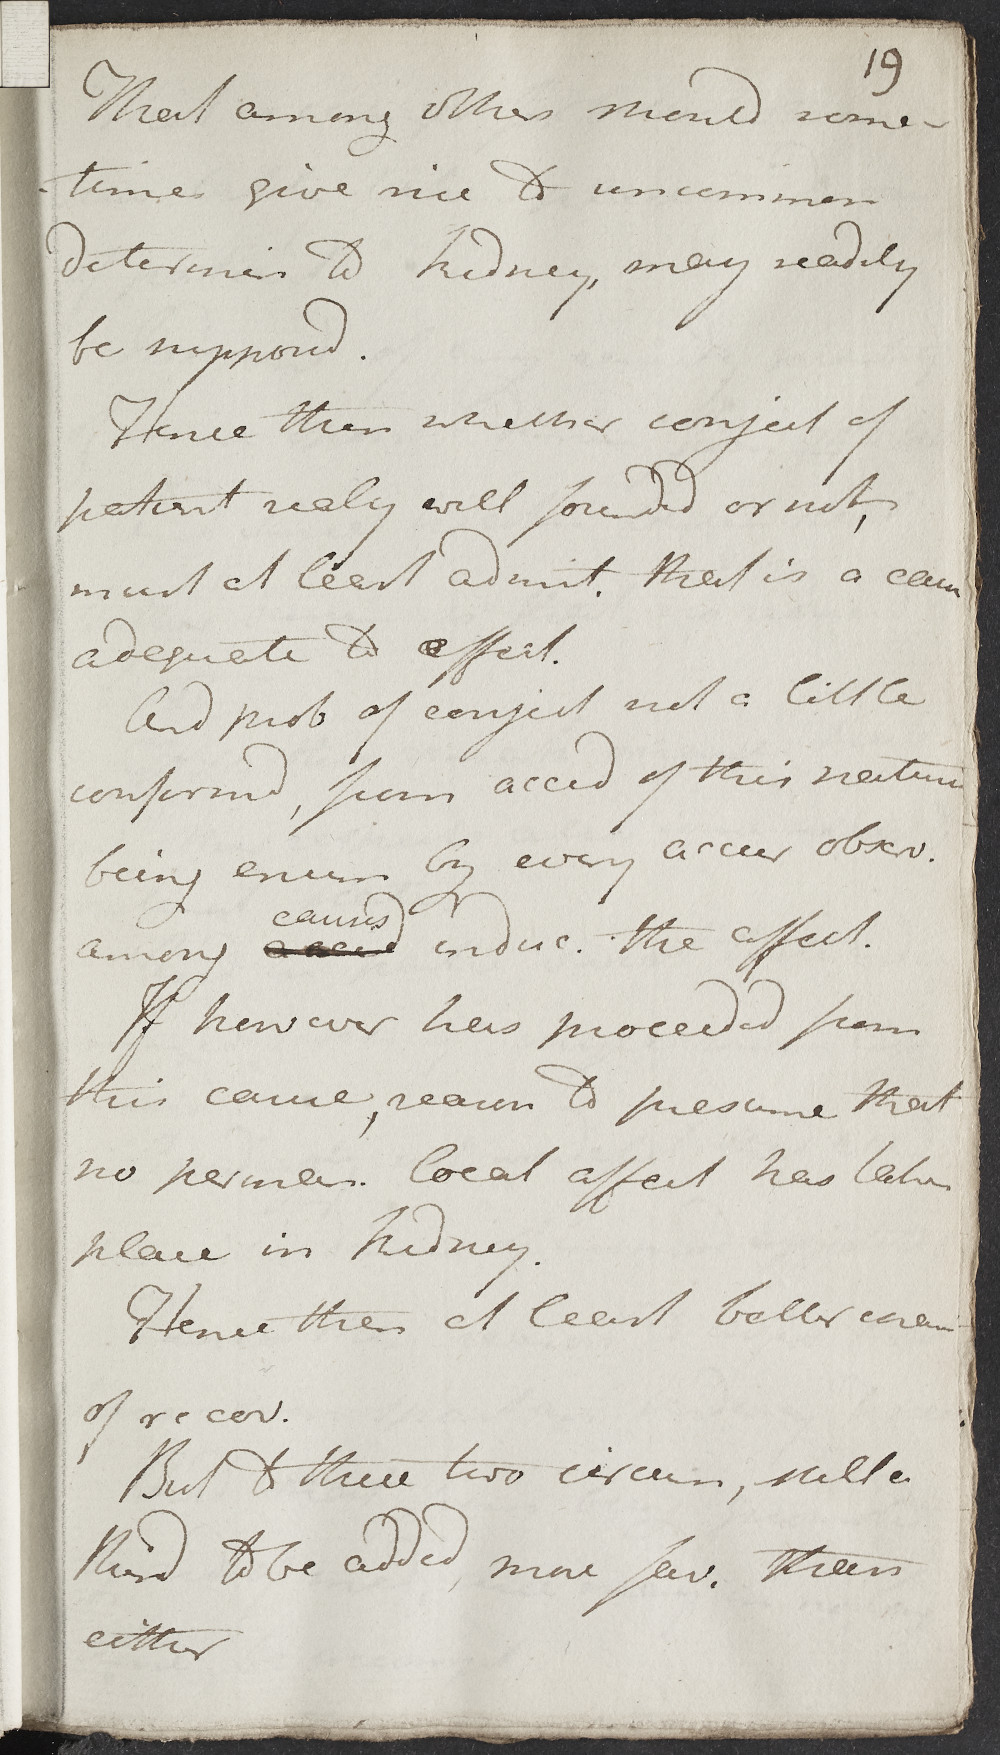 19
That among others should some-
-times give rise to uncommon
determin to kidney, may readily
be supposed.
Hence then whether conject of
patient realy well founded or not,
must at least admit. that is a caus
adequate to effect.
And prob of conject not a little
confirmd, from accid of this nature
being enum by every accur observ.
among causes accid induc. the affect.
If however has proceeded from
this cause, reason to presume that
no perman. local affect has taken
place in kidney.
Hence then at least better chan
of recov.
But to these two circum, still a
third to be added, more fav. than
either